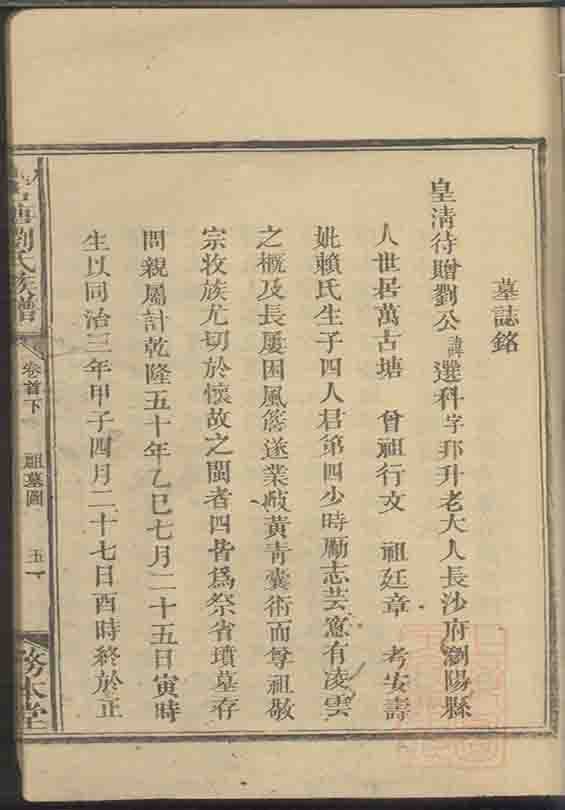 墓誌銘
皇清待贈劉公諱選科字邦升老大人長沙府瀏陽縣
人世居萬古塘 曾祖行文 祖廷章 考安壽
妣賴氏生子四人君第四少時勵志芸窓有凌雲
之概及長屢困風簷遂業岐黃青囊術而尊祖敬
宗收族尤切於懷故之閩者四皆為祭省墳墓存
問親屬計乾隆五十年乙巳七月二十五日寅時
生以同治三年甲子四月二十七日酉時終於正
劉氏族譜
卷首下
祖墓圖
五
務本堂